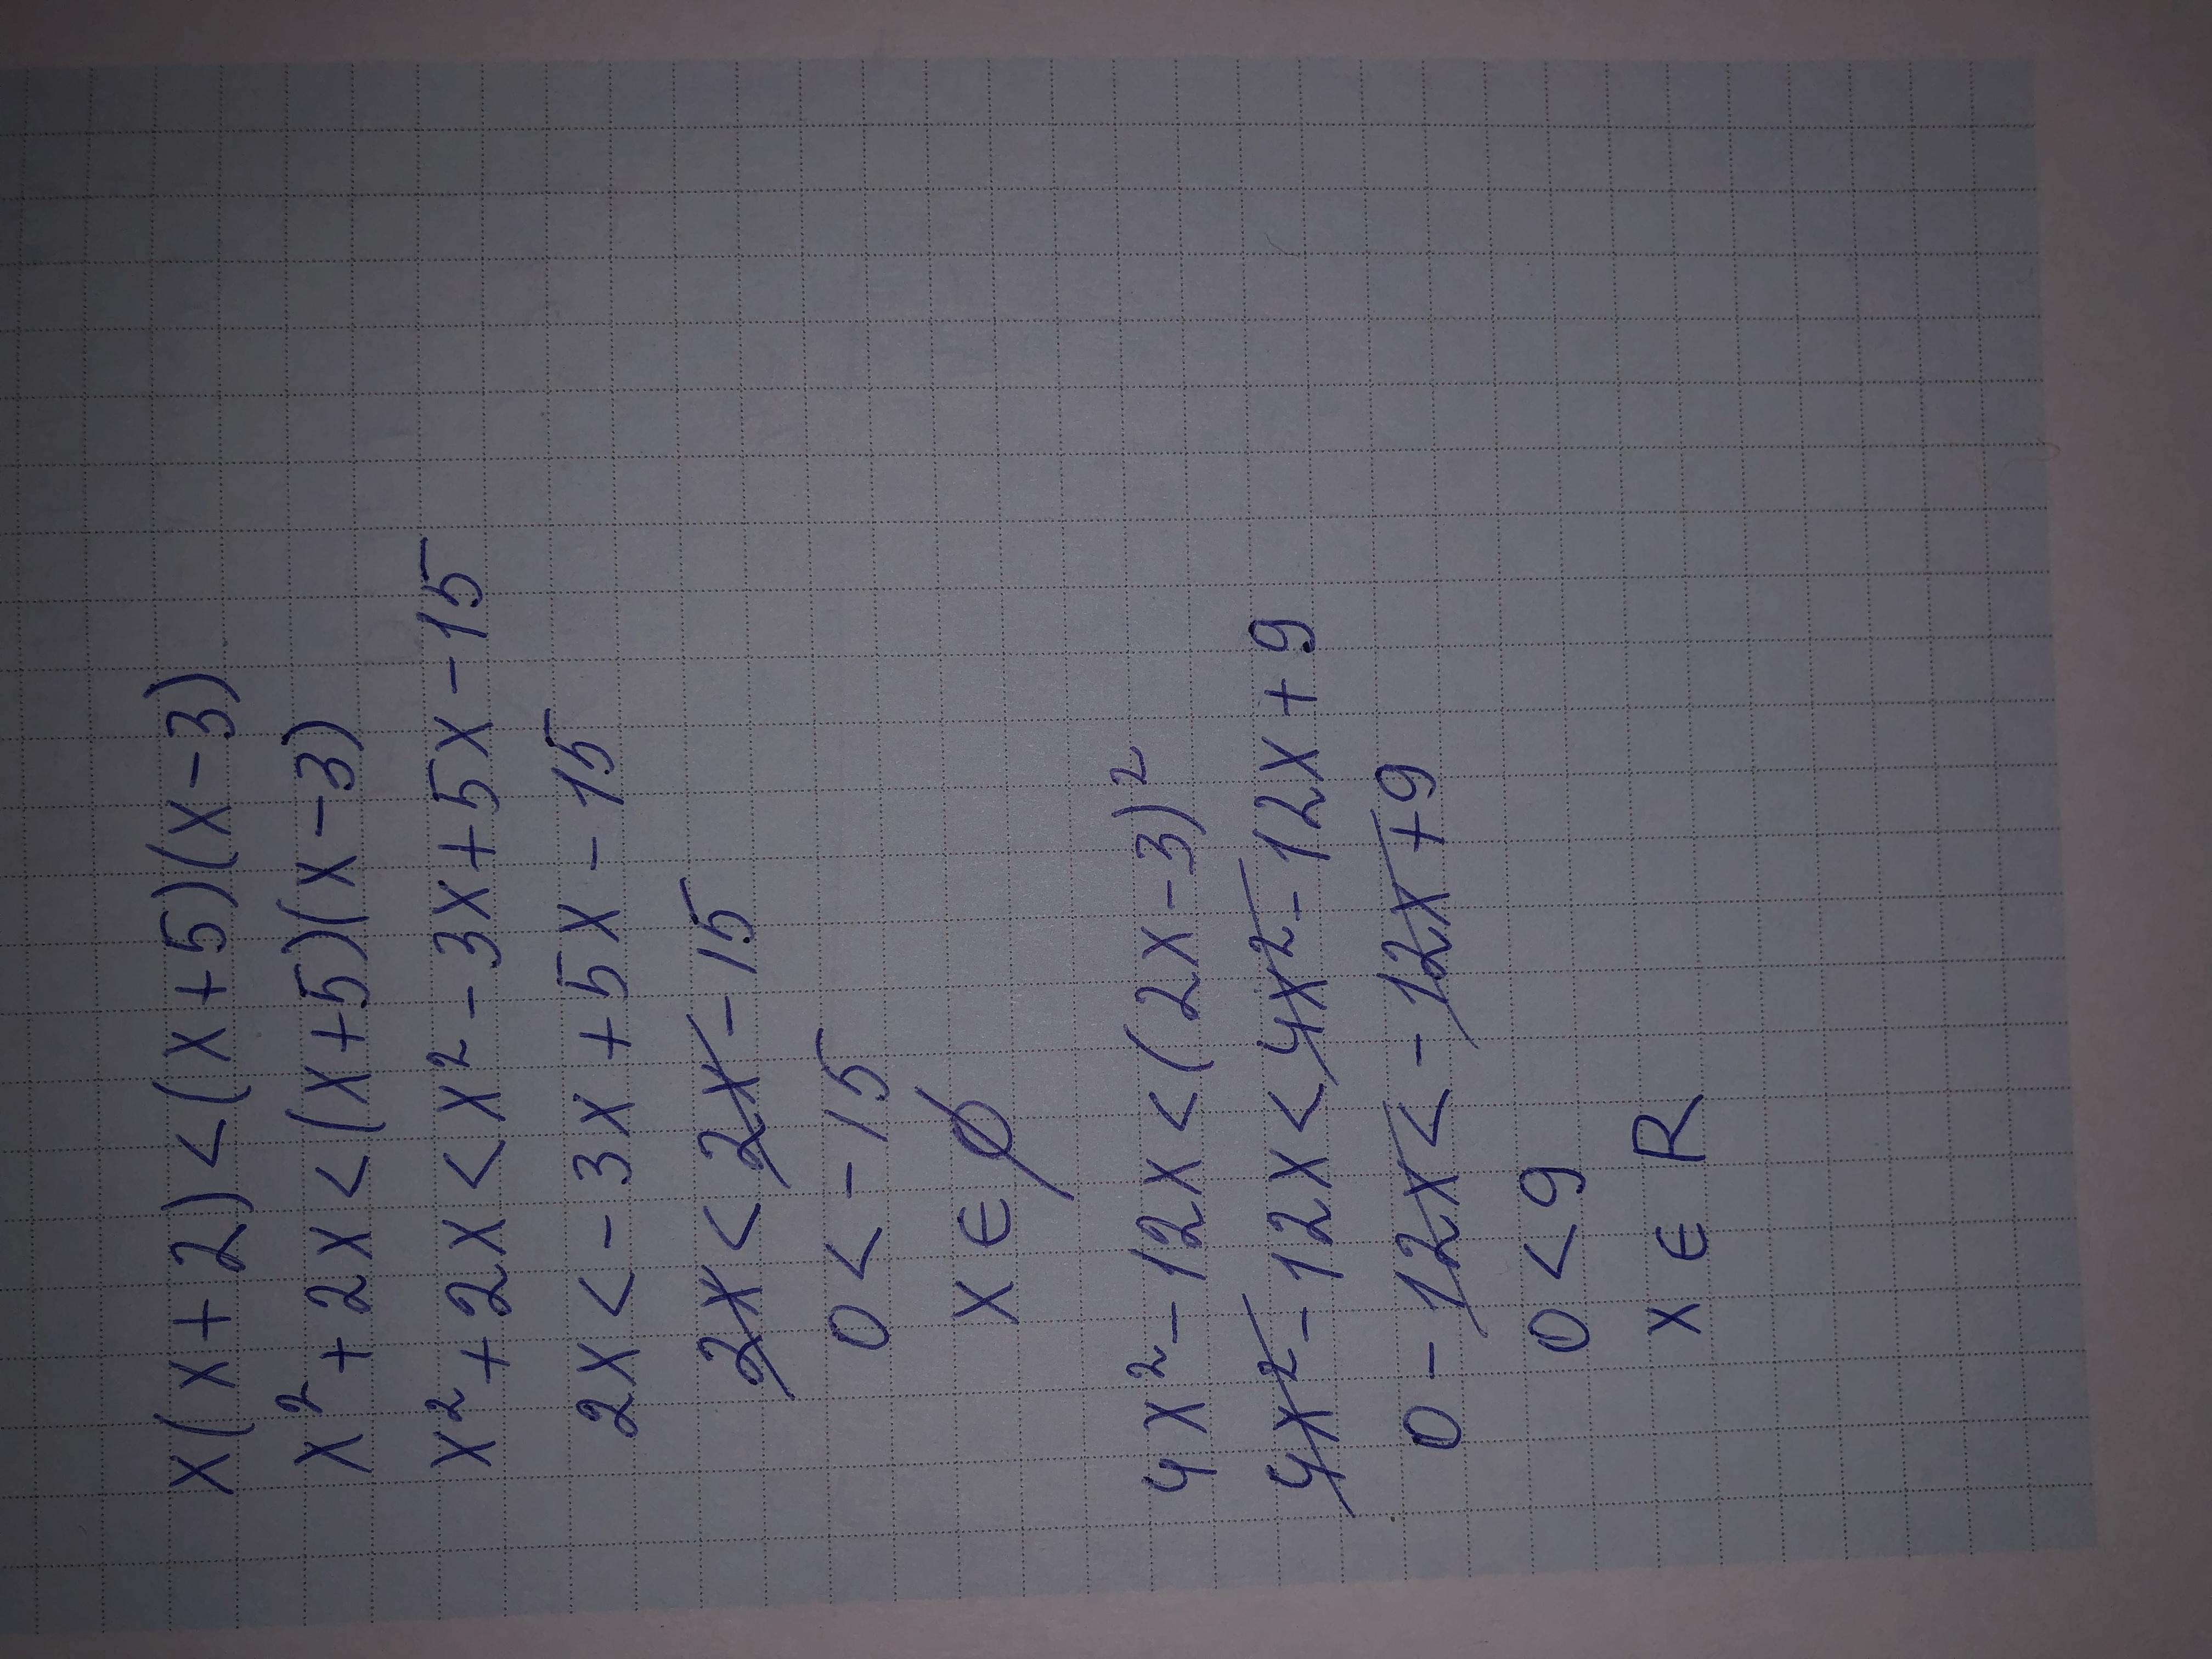 x(x+2)<(x+5)(x-3)
x²+2x<(x+5)(x-3)
x²+2x<x²-3x+5x-15
2x<-3x+5x-15
2x<2x-15
0<-15
x∈∅
4x²-12x<(2x-3)²
4x²-12x<4x²-12x+9
0-12x<-12x+9
0<9
x∈R